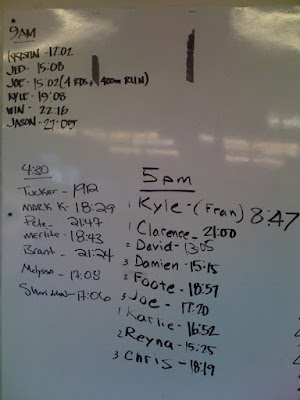 9AM
KRISTIN - 17:02
JED - 15:08
JOE - 15:02 (4 RDS, 400m RUN)
KYLE - 19:08
WIN - 22:16
JASON - 27:05
4:30
Tucker - 1912
Mark K. 18:29
Pete - 21:47
merlite - 18:43
Brant - 21:24
Melyssa - 17:08
17:06
5pm
1 Kyle - (Fran) 8:47
1 Clarence - 21:00
2 David - 13:05
3 Damien - 15:15
2 Foote - 18:57
3 Joe - 17:20
1 Karlie - 16:52
2 Reyna - 15:25
3 Chris - 18:19